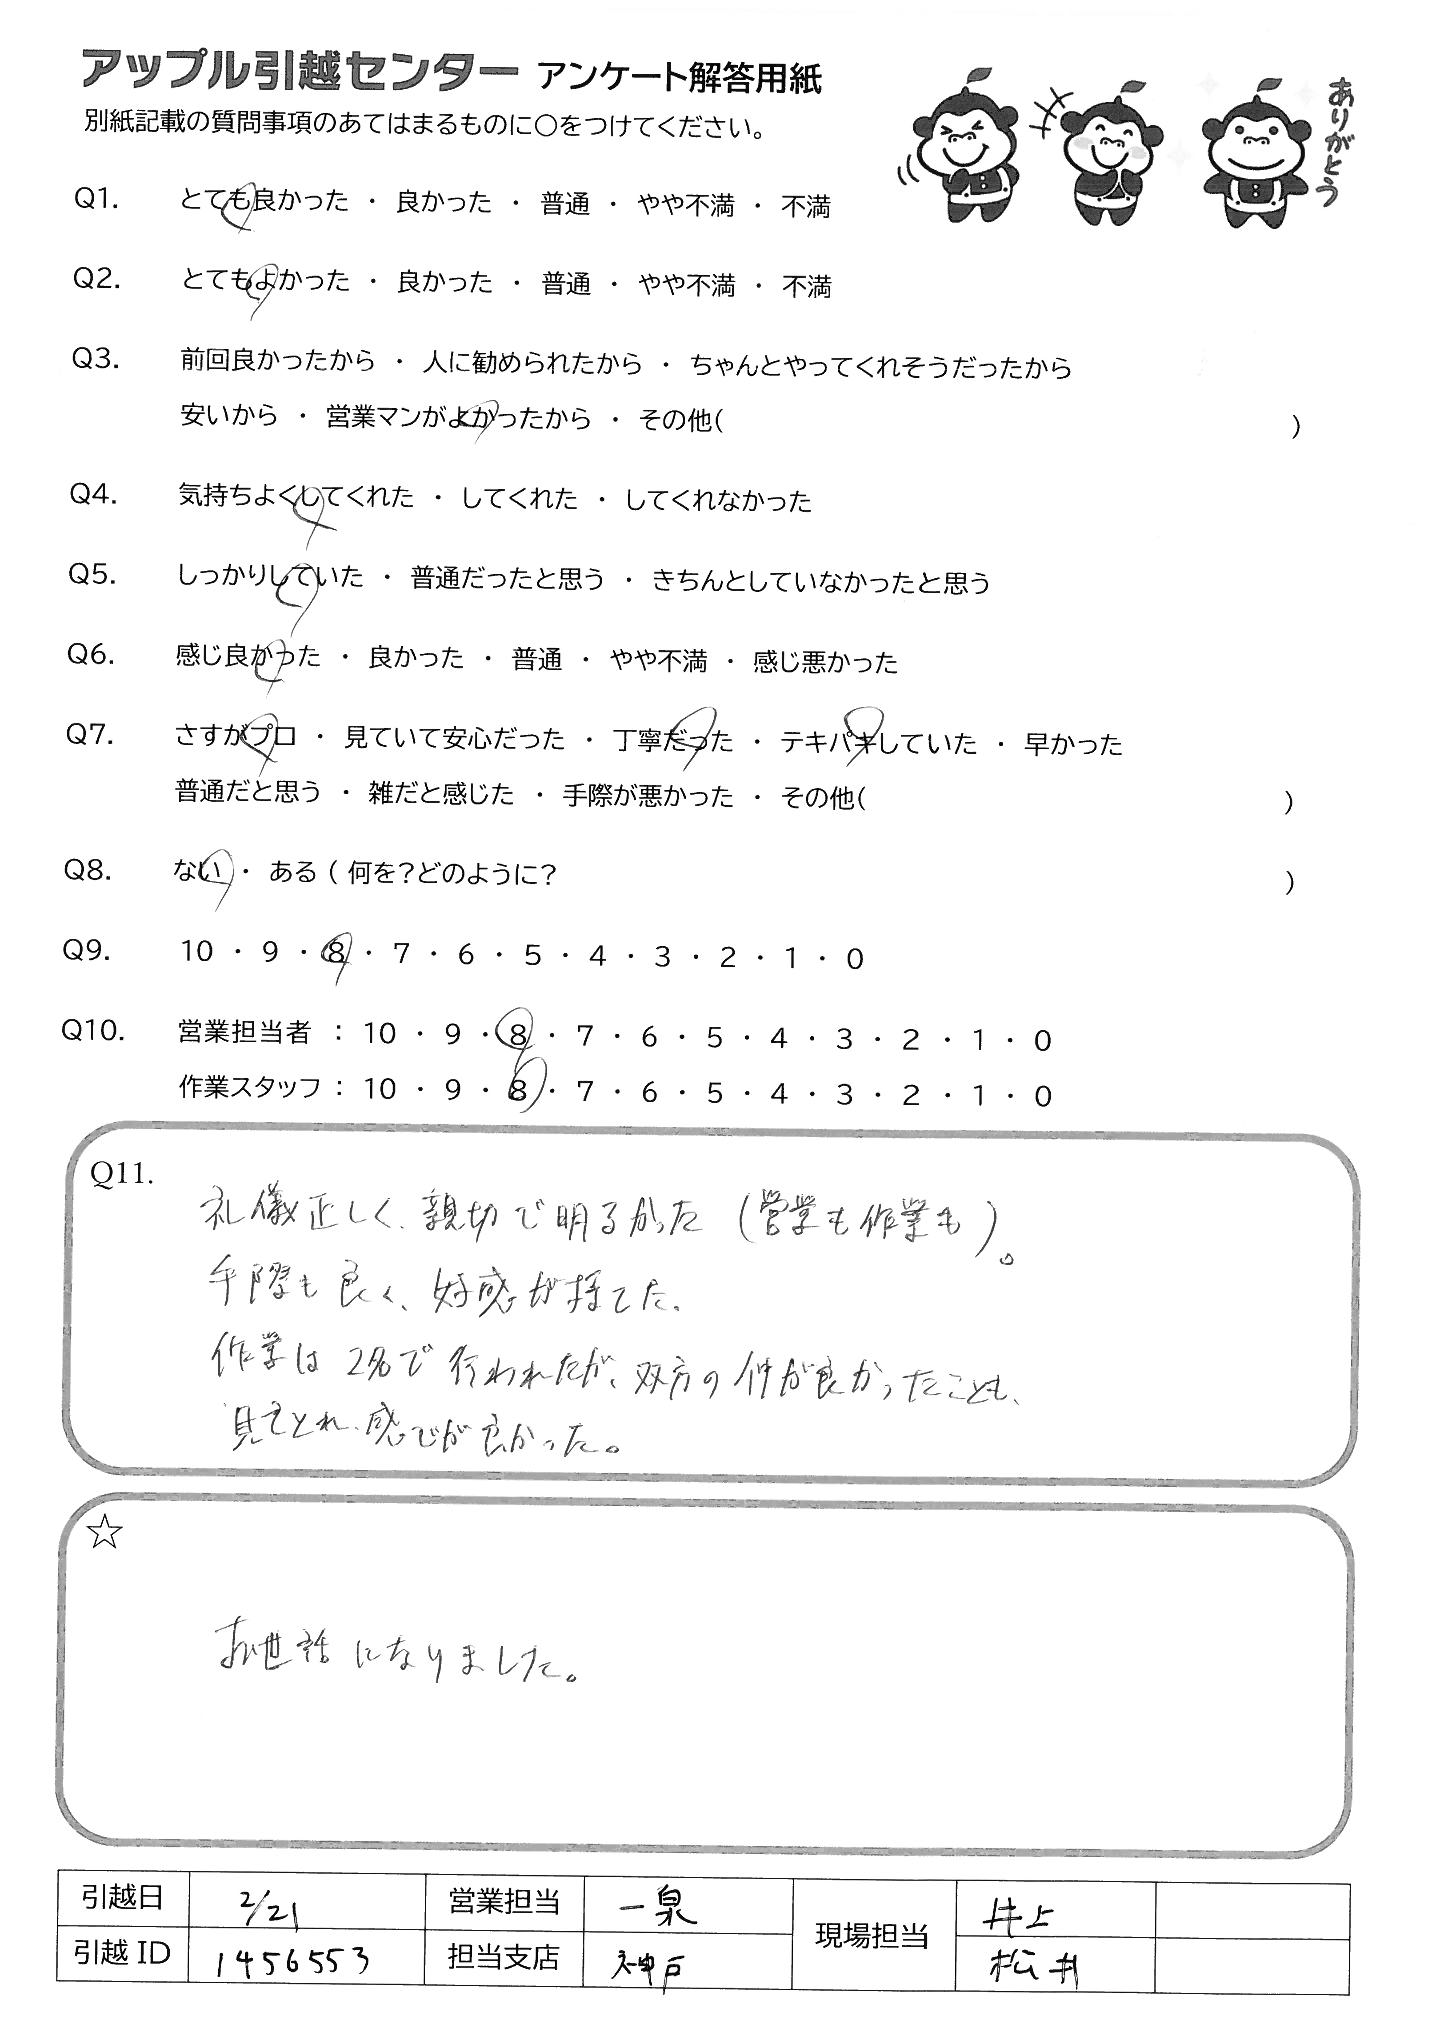 アップル引越センター アンケート解答用紙
別紙記載の質問事項のあてはまるものに○をつけてください。
ありがとう
Q1. とても良かった ・ 良かった ・ 普通 ・ やや不満 ・ 不満
Q2. とてもよかった ・ 良かった ・ 普通 ・ やや不満 ・ 不満
Q3. 前回良かったから ・ 人に勧められたから ・ ちゃんとやってくれそうだったから
安いから ・ 営業マンがよかったから ・ その他( )
Q4. 気持ちよくしてくれた ・ してくれた ・ してくれなかった
Q5. しっかりしていた ・ 普通だったと思う ・ きちんとしていなかったと思う
Q6. 感じ良かった ・ 良かった ・ 普通 ・ やや不満 ・ 感じ悪かった
Q7. さすがプロ ・ 見ていて安心だった ・ 丁寧だった ・ テキパキしていた ・ 早かった
普通だと思う ・ 雑だと感じた ・ 手際が悪かった ・ その他( )
Q8. ない ・ ある ( 何を？どのように？ )
Q9. 10 ・ 9 ・ 8 ・ 7 ・ 6 ・ 5 ・ 4 ・ 3 ・ 2 ・ 1 ・ 0
Q10. 営業担当者 : 10 ・ 9 ・ 8 ・ 7 ・ 6 ・ 5 ・ 4 ・ 3 ・ 2 ・ 1 ・ 0
作業スタッフ : 10 ・ 9 ・ 8 ・ 7 ・ 6 ・ 5 ・ 4 ・ 3 ・ 2 ・ 1 ・ 0
Q11.
礼儀正しく、親切で明るかった（営業も作業も）。
手際も良く、好感が持てた。
作業は2名で行われたが、双方の仲が良かったことも、
見てとれ、感じが良かった。
☆
お世話になりました。
引越日 2/21 営業担当 一泉 現場担当 井上
引越ID 1456553 担当支店 神戸 松井